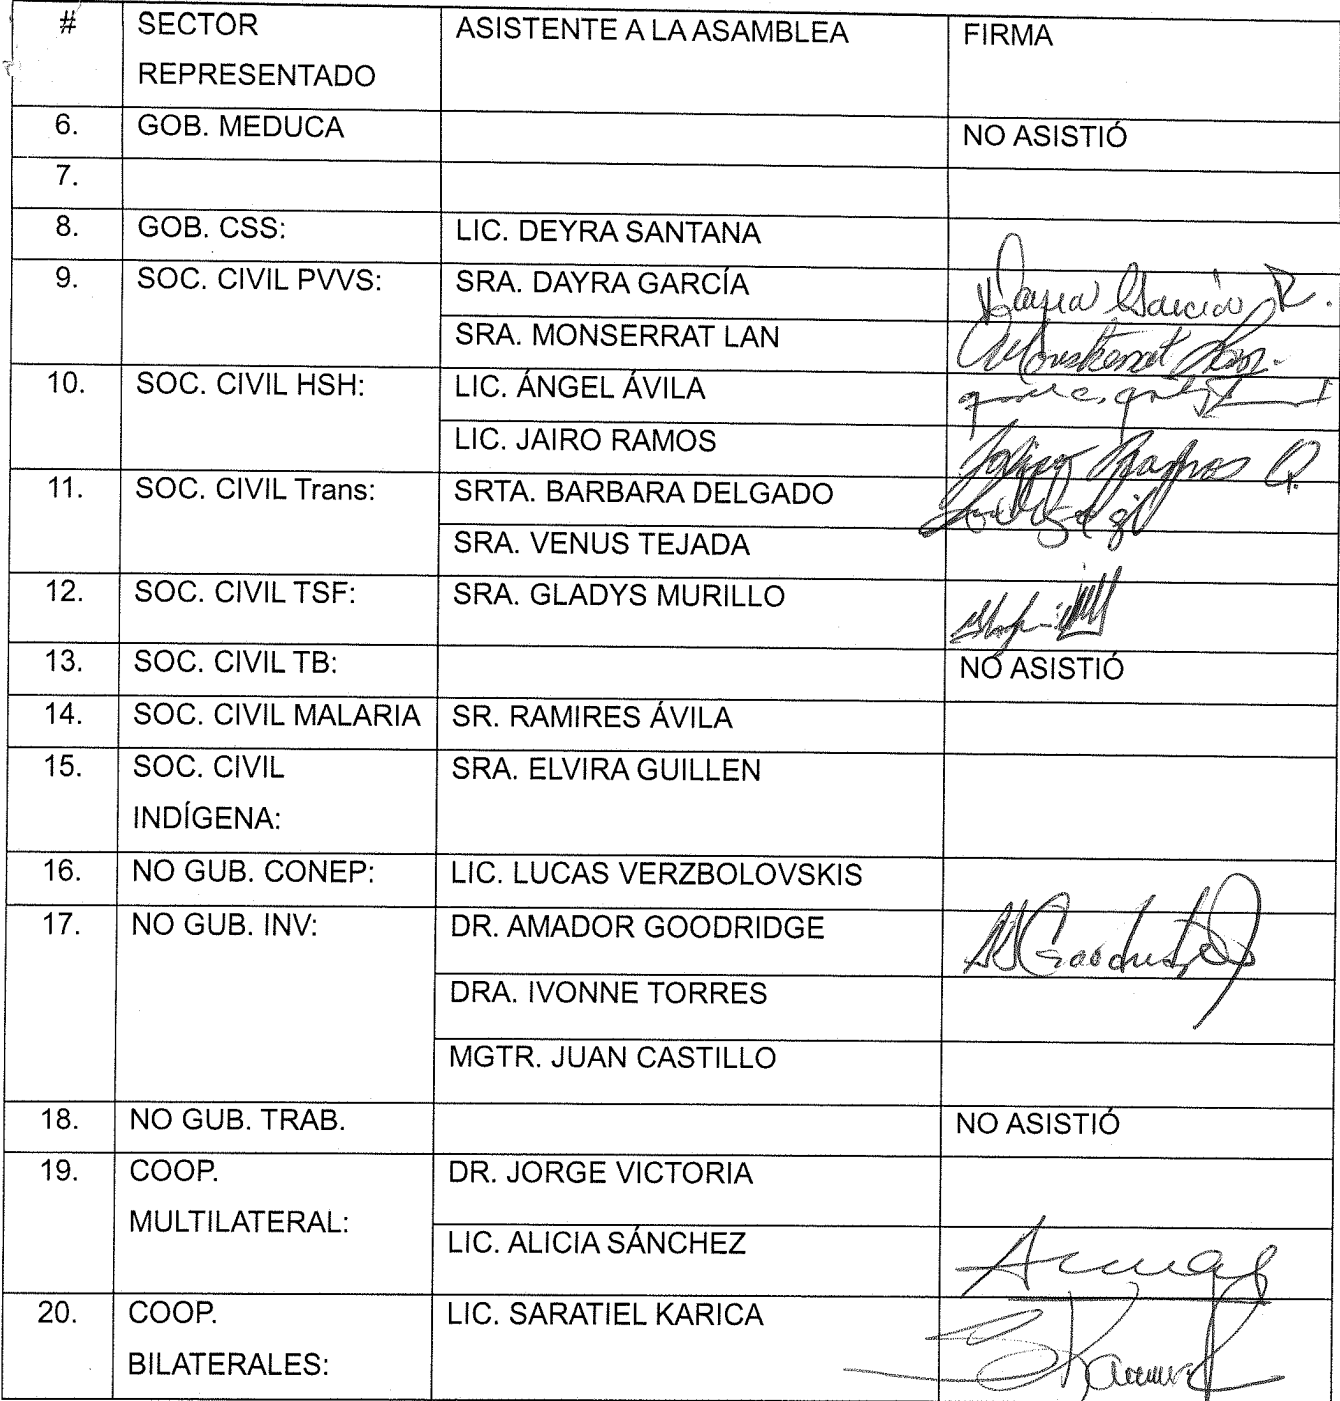 # SECTOR REPRESENTADO ASISTENTE A LA ASAMBLEA FIRMA
6. GOB. MEDUCA NO ASISTIÓ
7.
8. GOB. CSS: LIC. DEYRA SANTANA
9. SOC. CIVIL PVVS: SRA. DAYRA GARCÍA Dayra García R.
SRA. MONSERRAT LAN Monserrat Lan
10. SOC. CIVIL HSH: LIC. ÁNGEL ÁVILA
LIC. JAIRO RAMOS Jairo Ramos Q.
11. SOC. CIVIL Trans: SRTA. BARBARA DELGADO
SRA. VENUS TEJADA
12. SOC. CIVIL TSF: SRA. GLADYS MURILLO
13. SOC. CIVIL TB: NO ASISTIÓ
14. SOC. CIVIL MALARIA SR. RAMIRES ÁVILA
15. SOC. CIVIL INDÍGENA: SRA. ELVIRA GUILLEN
16. NO GUB. CONEP: LIC. LUCAS VERZBOLOVSKIS
17. NO GUB. INV: DR. AMADOR GOODRIDGE
DRA. IVONNE TORRES
MGTR. JUAN CASTILLO
18. NO GUB. TRAB. NO ASISTIÓ
19. COOP. MULTILATERAL: DR. JORGE VICTORIA
LIC. ALICIA SÁNCHEZ
20. COOP. BILATERALES: LIC. SARATIEL KARICA